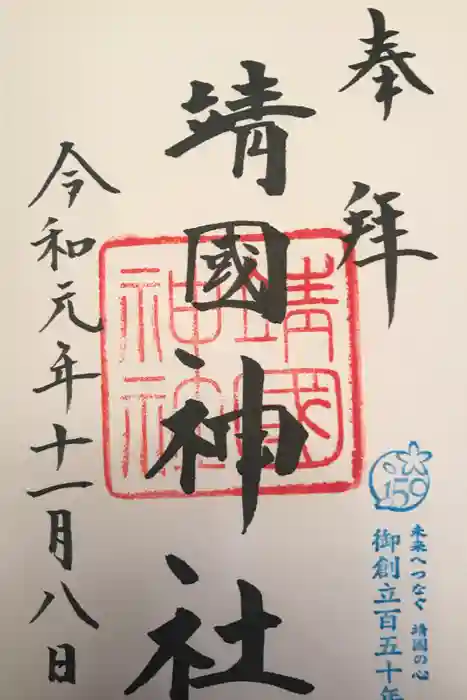 奉拝
靖國神社
令和元年十一月八日
靖國神社
150
未来へつなぐ 靖國の心
御創立百五十年